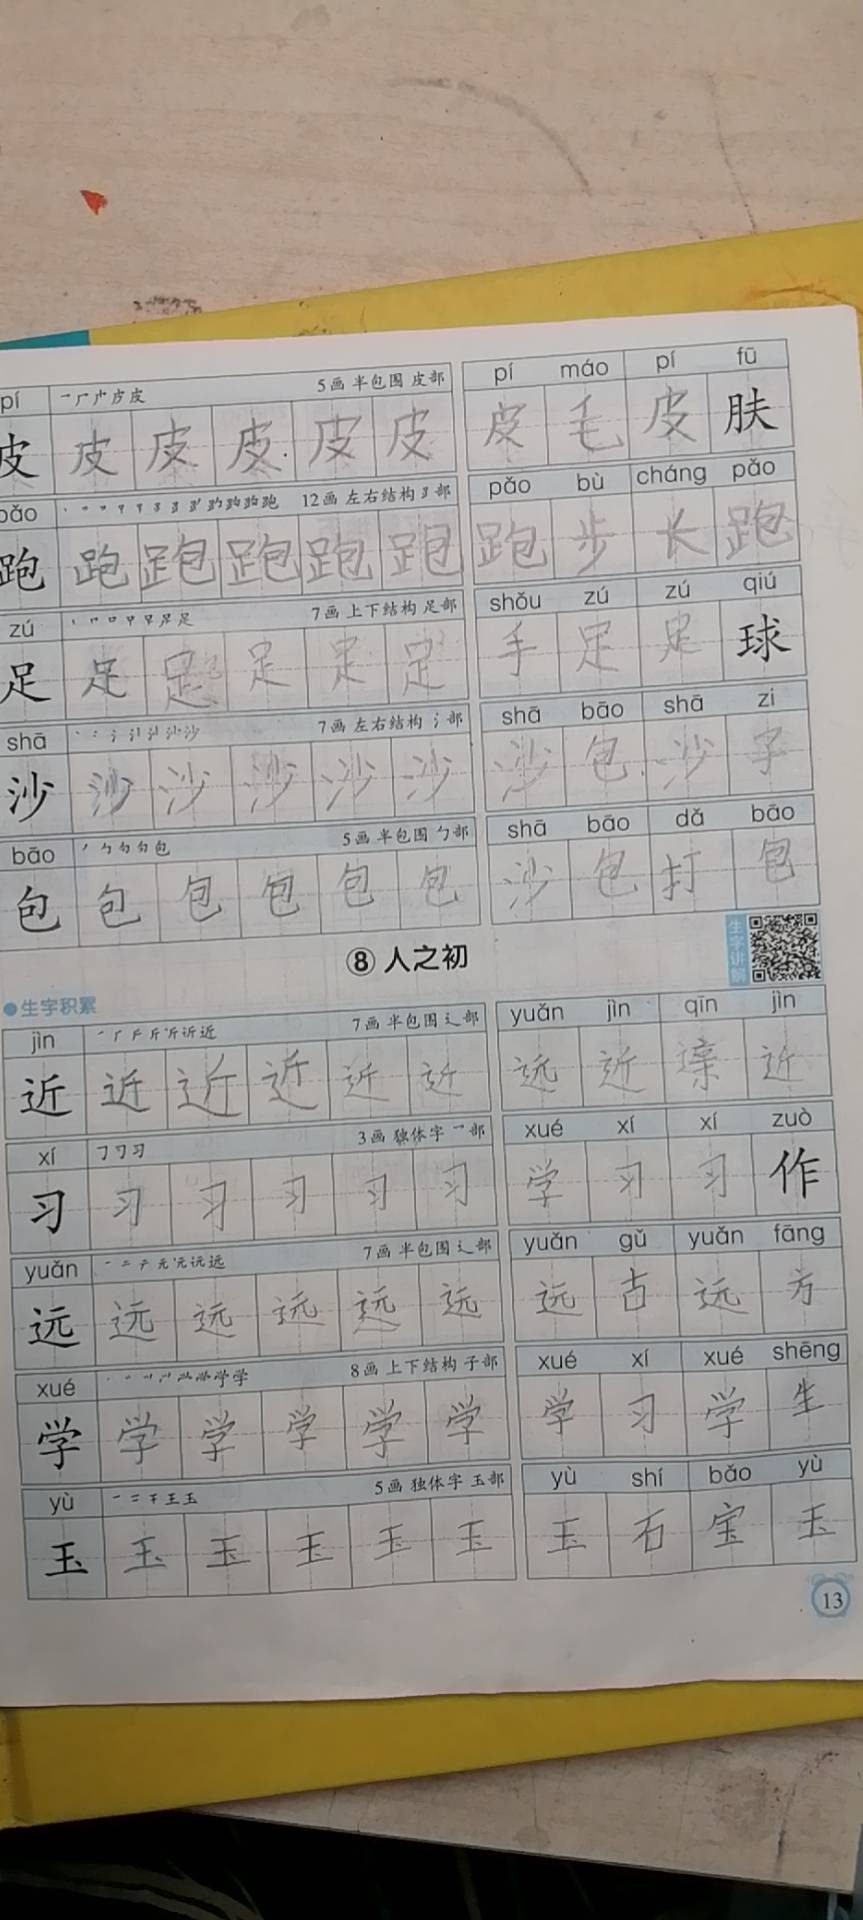 pí 一厂广皮皮 5画 半包围 皮部 pí máo pí fū
皮 皮 皮 皮 皮 皮 皮 毛 皮 肤
pǎo 12画 左右结构 部 pǎo bù cháng pǎo
跑 跑 跑 跑 跑 跑 跑 步 长 跑
zú 7画 上下结构 足部 shǒu zú zú qiú
足 足 足 足 足 足 手 足 足 球
shā 7画 左右结构 氵部 shā bāo shā zi
沙 沙 沙 沙 沙 沙 沙 包 沙 子
bāo 5画 半包围 勹部 shā bāo dǎ bāo
包 包 包 包 包 包 沙 包 打 包
⑧ 人之初 生字讲解
生字积累
jìn 7画 半包围 辶部 yuǎn jìn qīn jìn
近 近 近 近 近 近 远 近 近
xí 3画 独体字 乛部 xué xí xí zuò
习 习 习 习 习 习 学 习 习 作
yuǎn 7画 半包围 辶部 yuǎn gǔ yuǎn fāng
远 远 远 远 远 远 远 古 远 方
xué 8画 上下结构 子部 xué xí xué shēng
学 学 学 学 学 学 学 习 学 生
yù 一二干王玉 5画 独体字 玉部 yù shí bǎo yù
玉 玉 玉 玉 玉 玉 玉 石 宝 玉
13